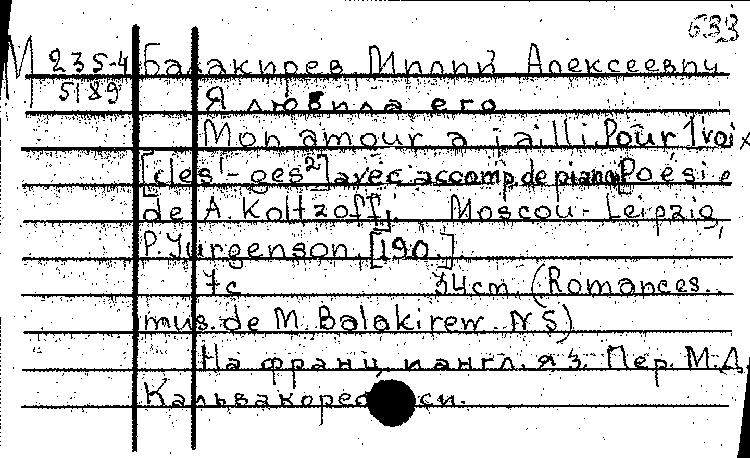 633
М 235-4 Балакирев, Милий Алексеевич
5189 Я любила его
Mon amour a jailli. Pour 1 voix
[des¹-ges²] avec accomp. de piano. Poésie
de A. Koltzoff. Moscou-Leipzig,
P. Jurgenson. [190.]
7с 34cm. (Romances..
mus. de M. Balakirew. N 5)
На франц. и англ. яз. Пер. М.Д.